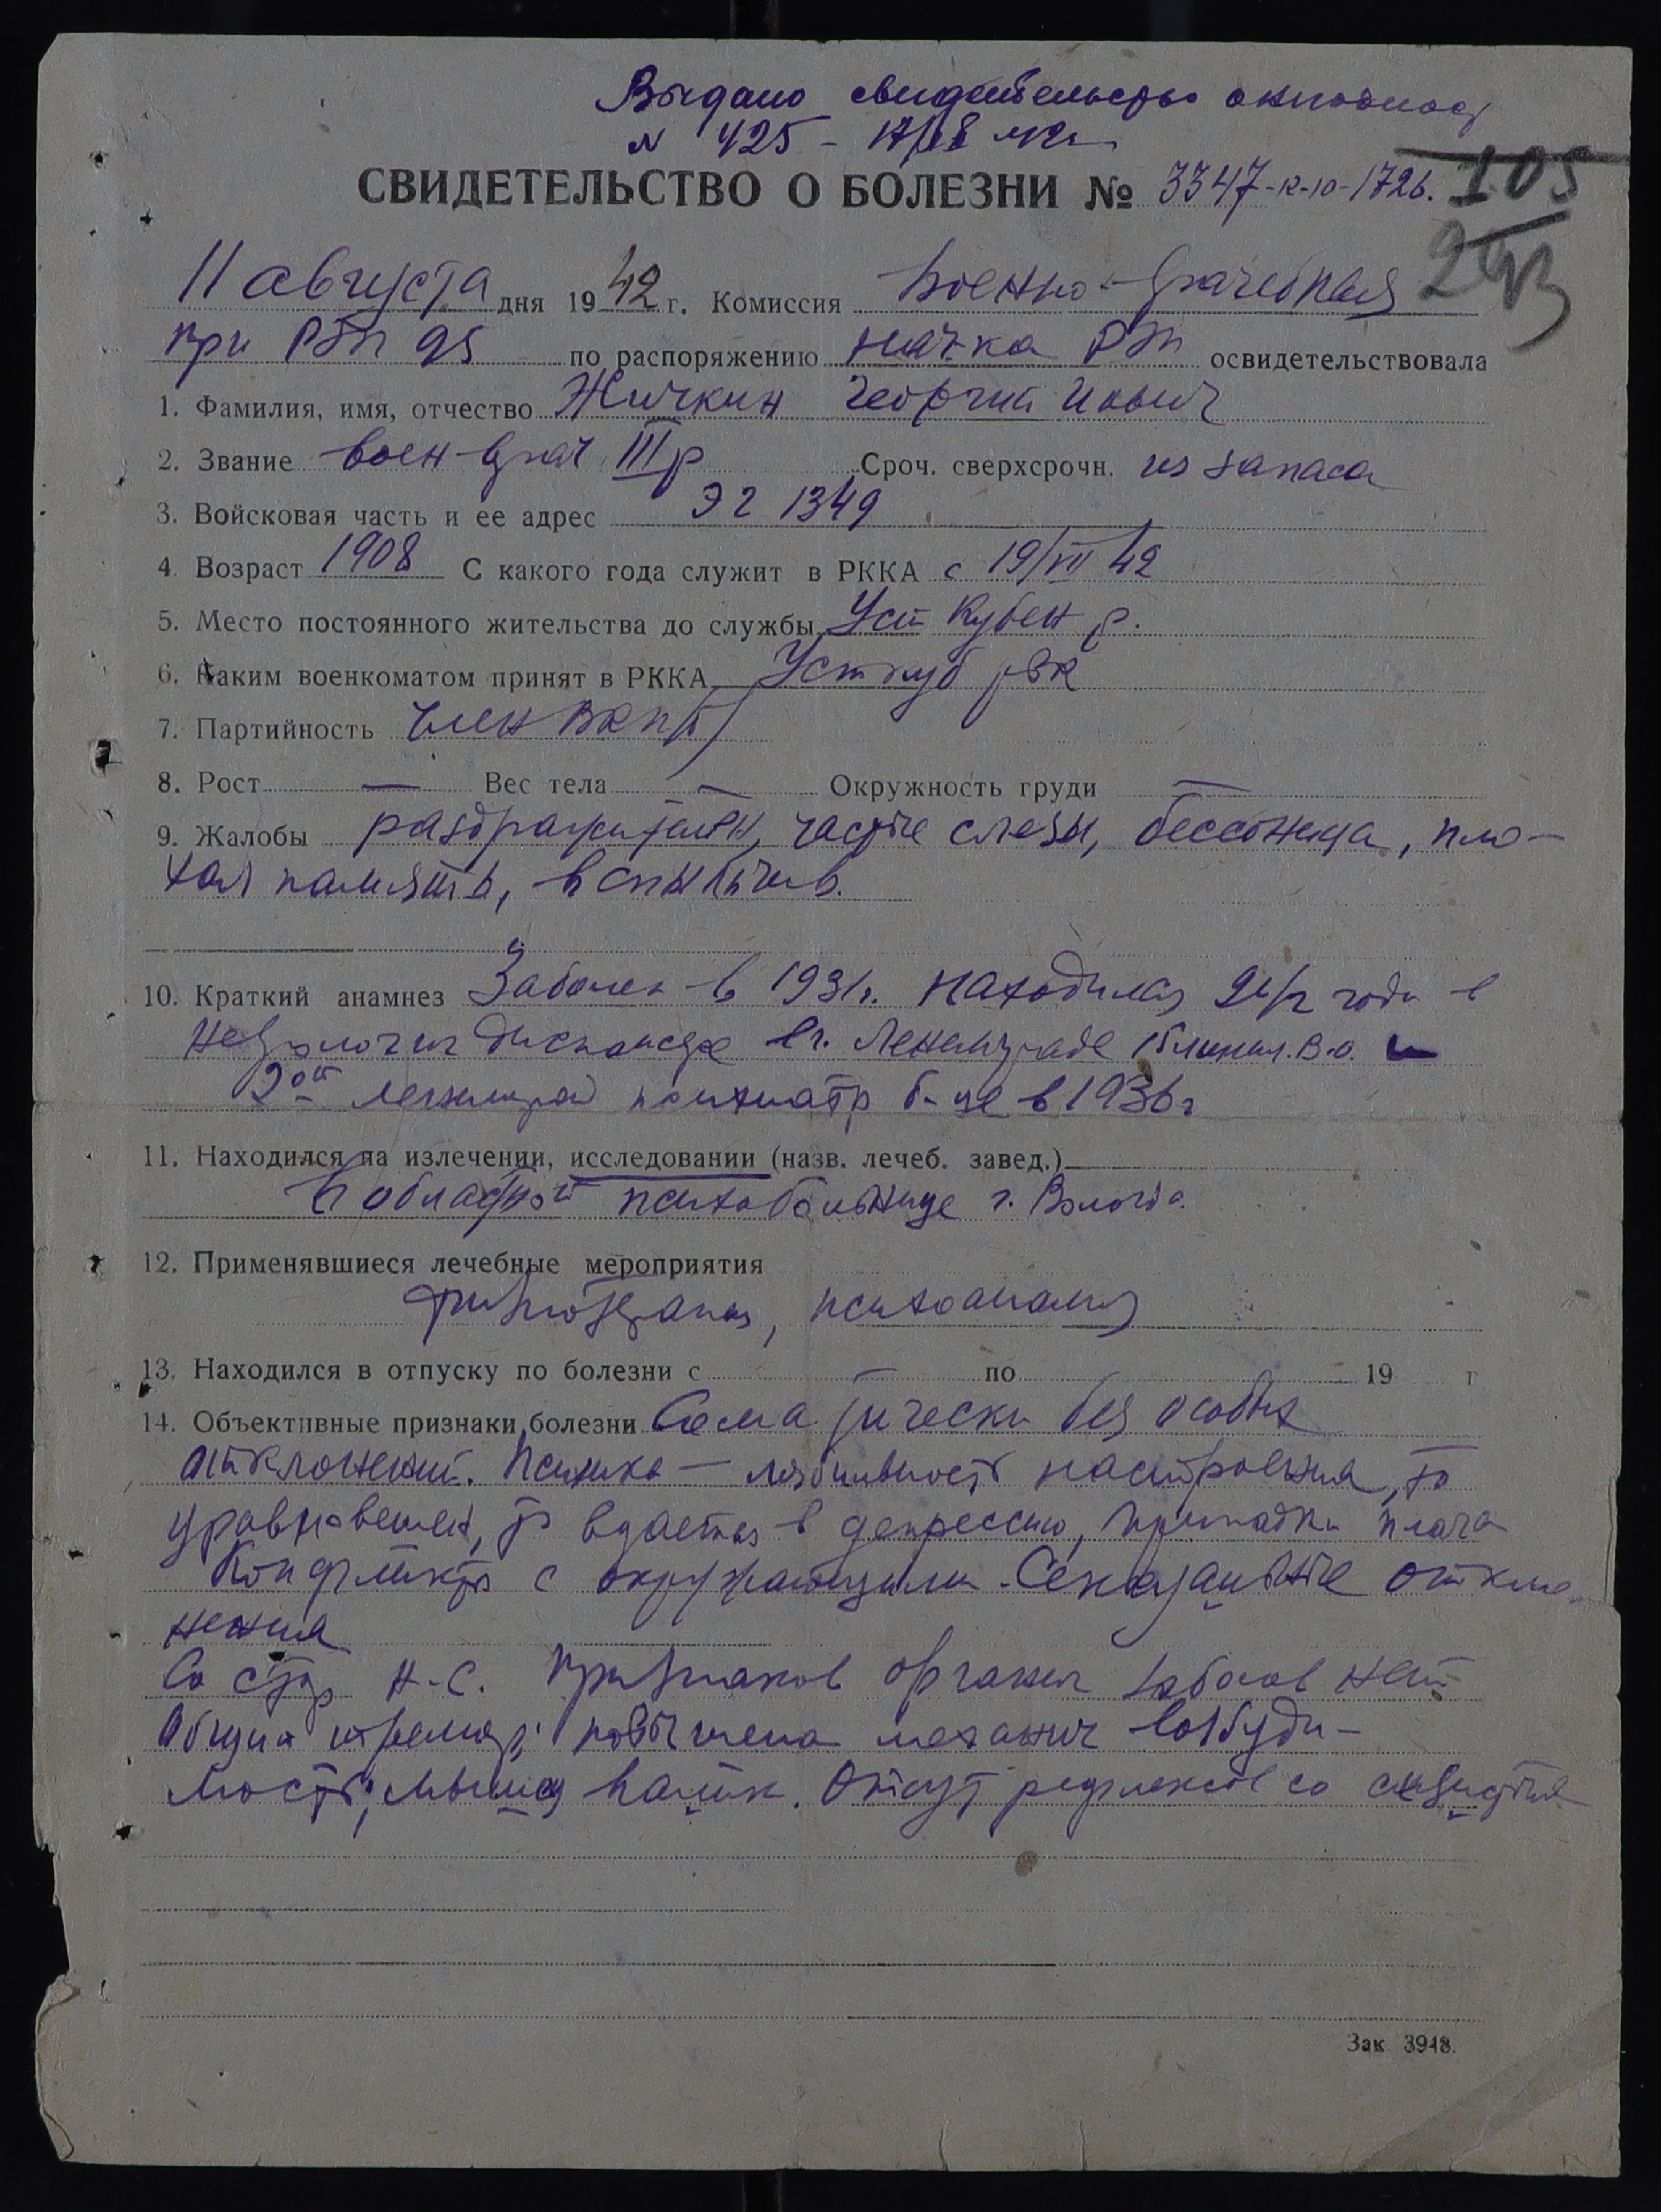 Выдано свидетельство
N 425 –
СВИДЕТЕЛЬСТВО О БОЛЕЗНИ № 3347-к-ю-172б. 105
293
11 августа дня 1942 г. Комиссия Военно-врачебная
при РЭП 95 по распоряжению нач-ка РЭП освидетельствовала
1. Фамилия, имя, отчество Жичкин Георгий Иович
2. Звание воен-врач III р Сроч. сверхсрочн. из запаса
3. Войсковая часть и ее адрес ЭГ 1349
4. Возраст 1908 С какого года служит в РККА с 19/VII 42
5. Место постоянного жительства до службы Уст Кубен р.
6. Каким военкоматом принят в РККА Усткуб рвк
7. Партийность член ВКП(б)
8. Рост — Вес тела — Окружность груди —
9. Жалобы раздражителен, частые слезы, бессонница, пло-
хая память, вспыльчив.
10. Краткий анамнез Заболел в 1931г. находился 2 1/2 года в
невролог дисп г. Ленинграде В.О. и
2ой психиатр б-це в 1936г
11. Находился на излечении, исследовании (назв. лечеб. завед.)
В областной психобольнице г. Вологда.
12. Применявшиеся лечебные мероприятия
физиотерапия, психоанализ
13. Находился в отпуску по болезни с по 19 г
14. Объективные признаки болезни Соматически без особых
отклонений. Психика — лябильность настроения, то
уравновешен, то вдается в депрессию, припадки плача
Конфликты с окружающими. Сексуальные откло-
нения
Со стор Н.С. признаков органич забол нет
Общий тремор; повышена механич возбуди-
мость мышц. Отсут рефлексов со слизистых
Зак. 3948.